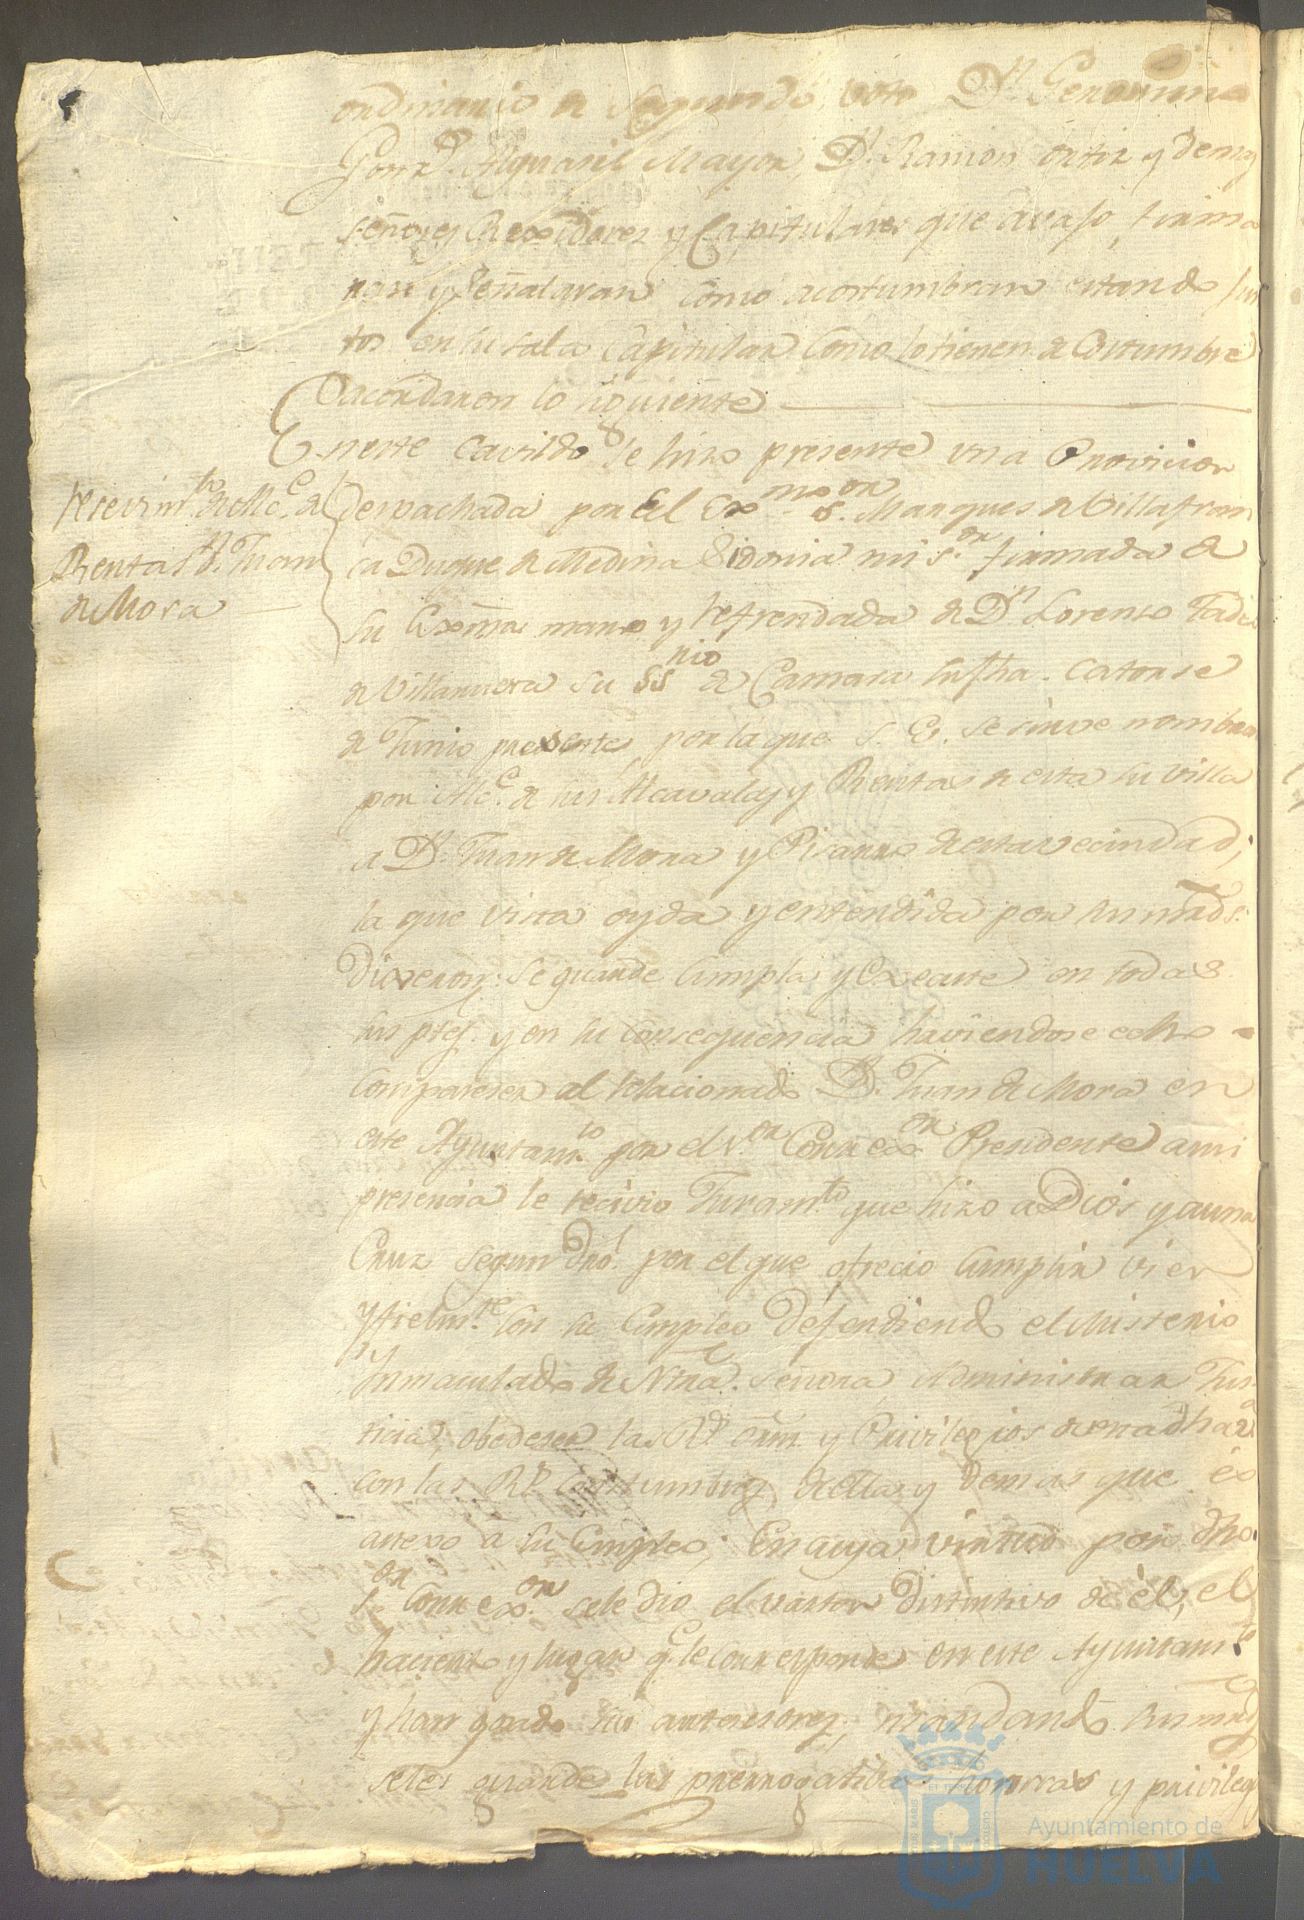 ordinario de segundo voto Dn. Geronimo
Gonz. Alguasil Mayor, Dn. Ramon Ortiz y demas
señores Rexidores y Capitulares que avajo firma
ran y señalaran como acostumbran estando jun
tos en su sala Capitular como lo tienen de Costumbre
acordaron lo siguiente
En este Cavildo se hizo presente una Provicion
Recevimto. de Alce. de
Rentas Dn. Juan
de Mora
Despachada por el Exmo. Sor. Marques de Villafran
ca Duque de Medina Sidonia mi Sor. firmada de
su Exma. mano y refrendada de Dn. Lorenzo Tadeo
de Villanueva su SSrio de Camara su fha. catorse
de Junio presente, por la que S. E. se sirve nombrar
por Alce. de sus Alcavalas y Rentas de esta su Villa
a Dn. Juan de Mora y Pisarro de esta vecindad;
la que vista oyda y entendida por sus mrds.
Dixeron: se guarde Cumpla y Execute en todas
sus ptes. y en su consequencia haviendose echo
Compareser al relacionado Dn. Juan de Mora en
este Ayuntamto. por el Sor. Correxor. Presidente a mi
presencia le recivio Juramto. que hizo a Dios y a una
Cruz segun dro. por el que ofrecio Cumplir vien
y fielmte. con su Empleo Defendiendo el Misterio
Ynmaculado de Ntra. Señora Administrar Jus
ticia, obedeser las Rs. exm. y Privilegios de esta dha. va.
con las Rs. Costumbres de ella y demas que es
anexo a su Empleo; En cuya virtud por dho.
Sor. Correxor. se le dio el vaston distintivo de él, el
haciento y lugar qe. le corresponde en este Ayuntamto.
y han gosado sus antesesores, mandando sus mrds.
seles guarden las prerrogativas honrras y privileg
Ayuntamiento de
HUELVA